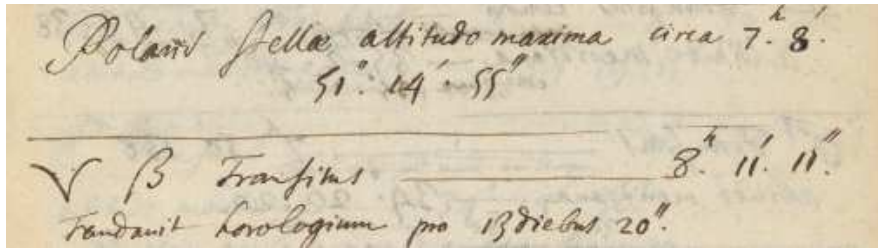 Polaris Stellæ altitudo maxima circa 7.h 8'.
51°. 14'. 55''
♈ β Transitus 8.h 11'. 11''.
Tardavit horologium pro 13 diebus 20''.